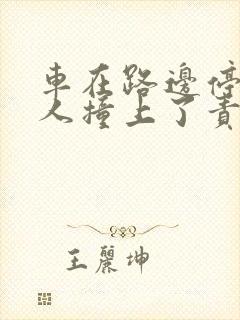 車在路邊停
人撞上了責
王麗坤